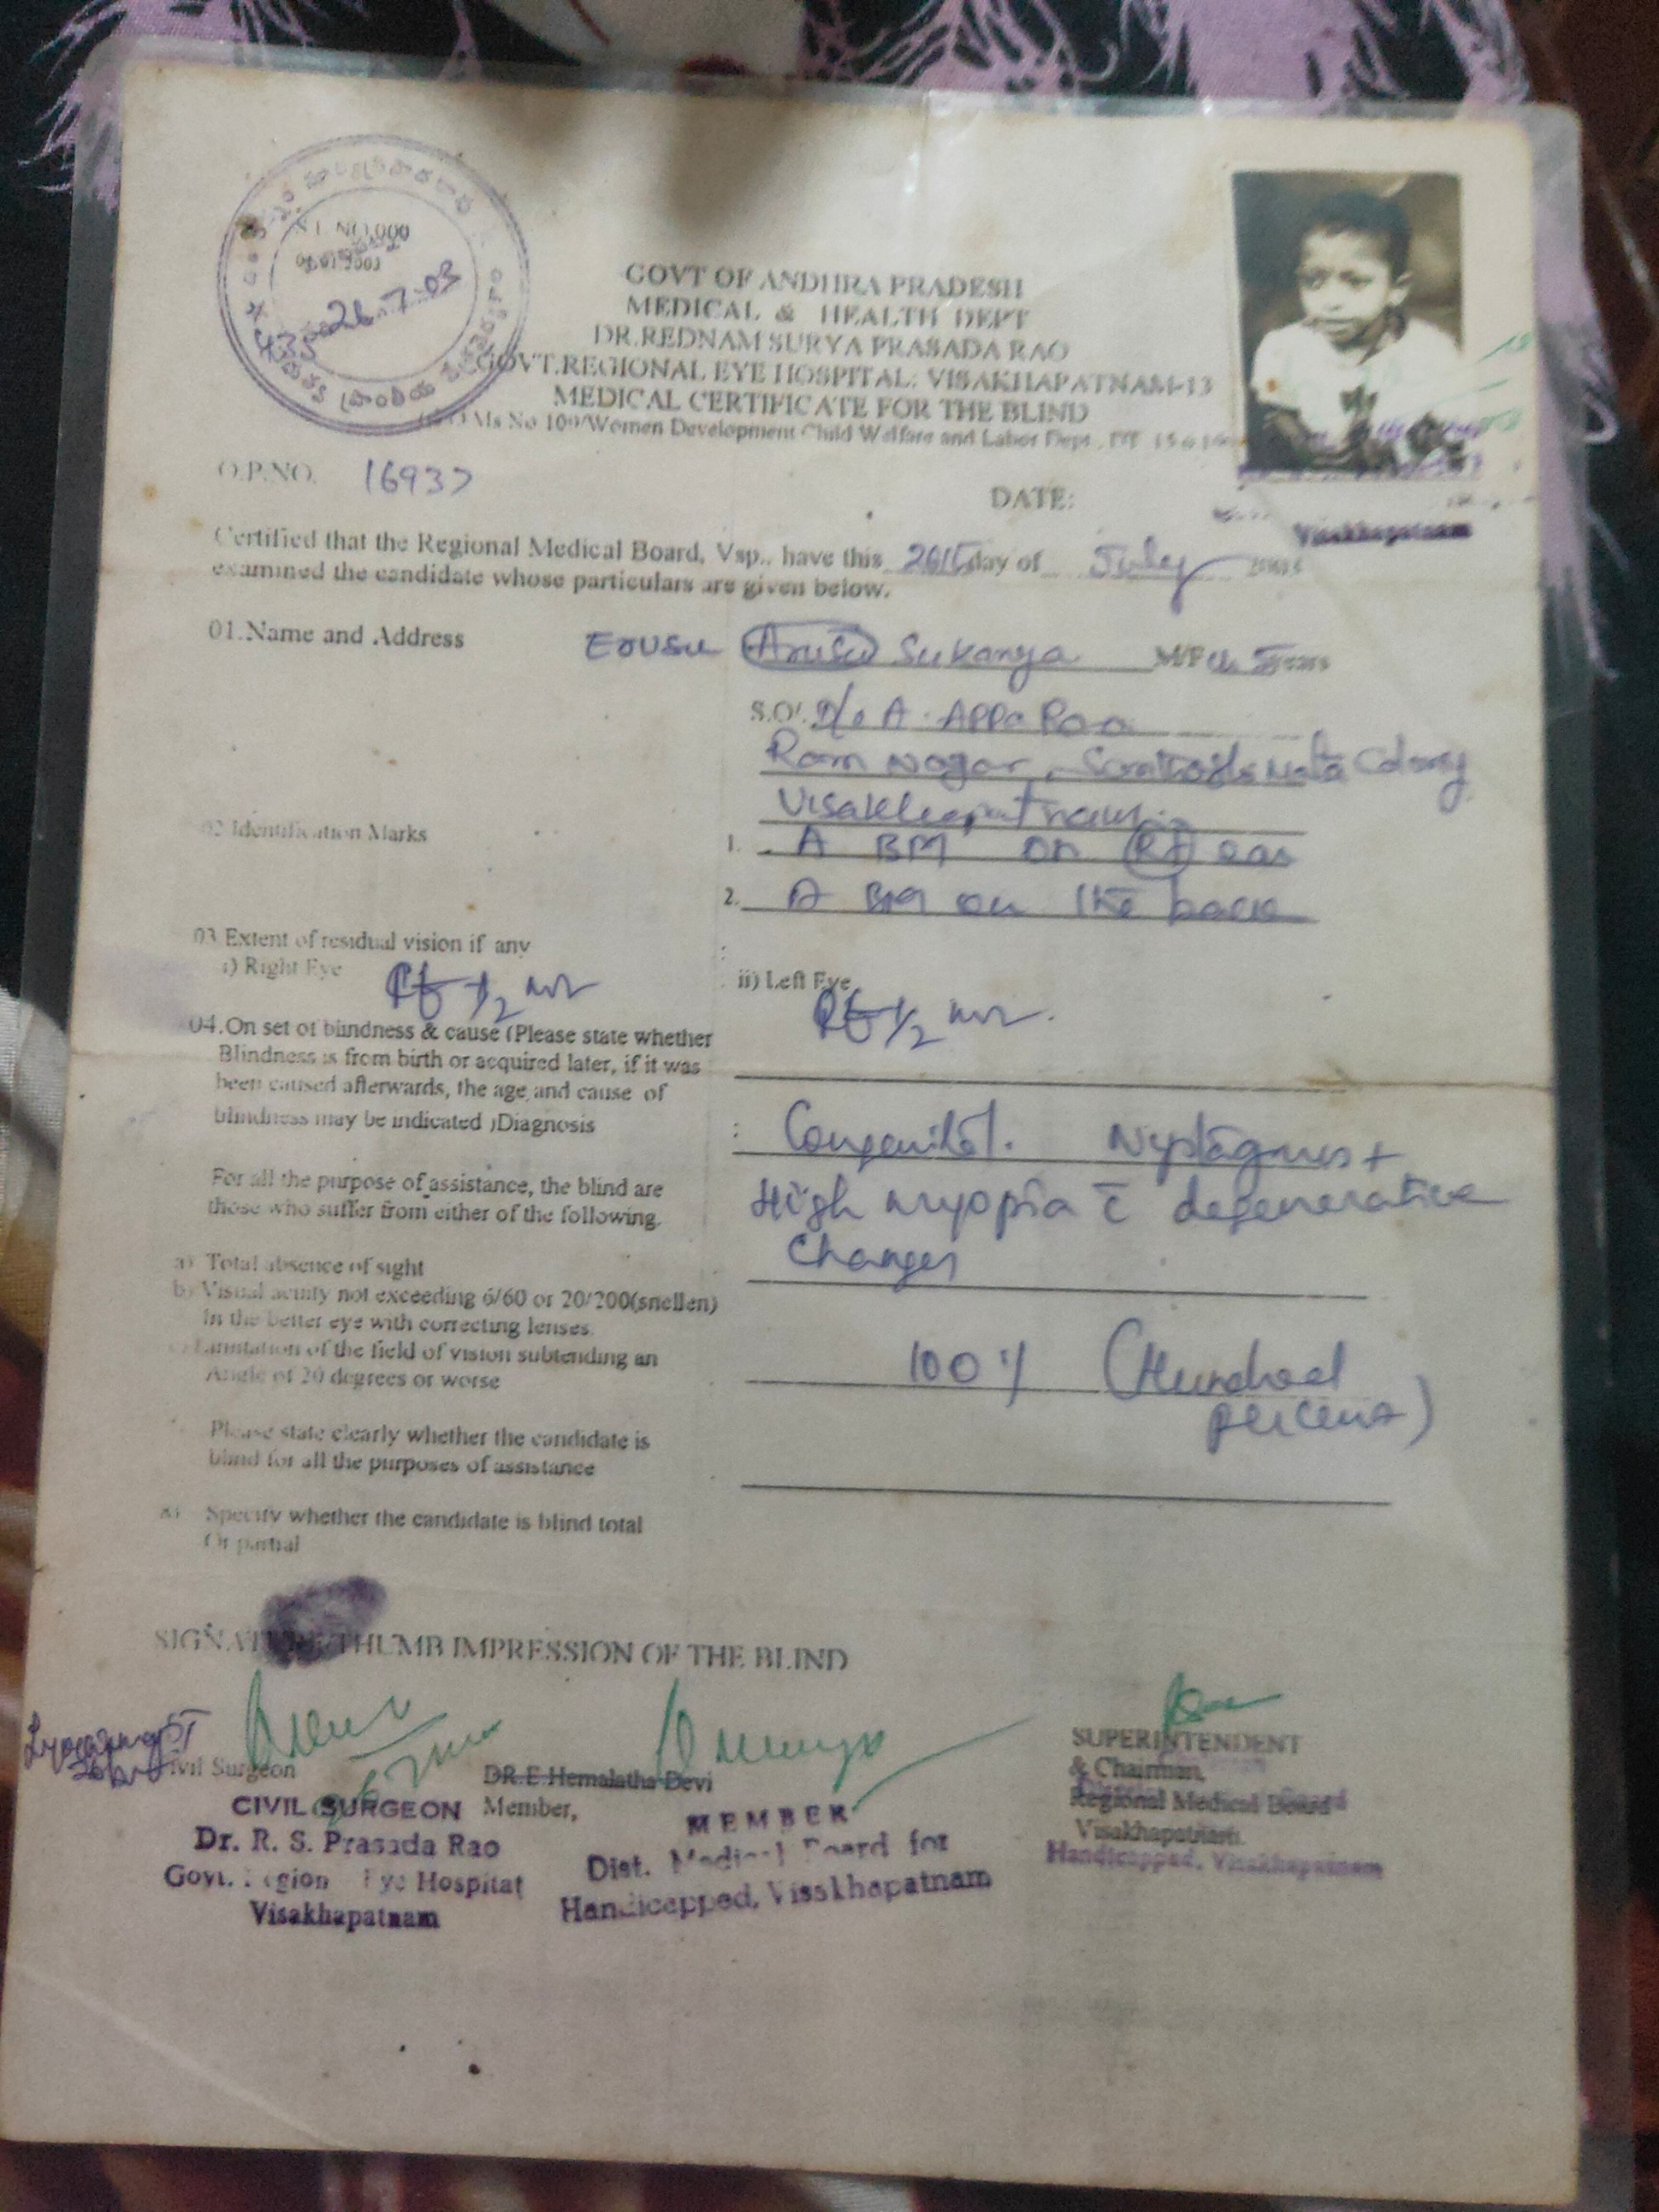 26-7-03
GOVT OF ANDHRA PRADESH
MEDICAL & HEALTH DEPT
DR.REDNAM SURYA PRASADA RAO
GOVT.REGIONAL EYE HOSPITAL: VISAKHAPATNAM-13
MEDICAL CERTIFICATE FOR THE BLIND
Ms No 109/Women Development Child Welfare and Labor Dept.,
O.P.NO. 16937
DATE:
Visakhapatnam
Certified that the Regional Medical Board, Vsp., have this 26th day of July
examined the candidate whose particulars are given below.
01.Name and Address Erusu Arusu Sukanya M/F Years
S.O/ D/o A. Appa Rao
Ram Nagar, Santhoshi Mata Colony
Visakhapatnam
02 Identification Marks
1. A BM on Rt ear
2. A BM on the back
03 Extent of residual vision if any
i) Right Eye ii) Left Eye
04.On set of blindness & cause (Please state whether
Blindness is from birth or acquired later, if it was
been caused afterwards, the age and cause of
blindness may be indicated )Diagnosis
: Congenital. Nystagmus +
High myopia c̄ degenerative
Changes
For all the purpose of assistance, the blind are
those who suffer from either of the following.
a) Total absence of sight
b) Visual acuity not exceeding 6/60 or 20/200(snellen)
In the better eye with correcting lenses.
c) Limitation of the field of vision subtending an
Angle of 20 degrees or worse
100% (Hundred
percent)
Please state clearly whether the candidate is
blind for all the purposes of assistance
Specify whether the candidate is blind total
Or partial
SIGNATURE THUMB IMPRESSION OF THE BLIND
Civil Surgeon
CIVIL SURGEON
Dr. R. S. Prasada Rao
Govt. Region Eye Hospital
Visakhapatnam
DR.E.Hemalatha Devi
Member,
MEMBER
Dist. Medical Board for
Handicapped, Visakhapatnam
SUPERINTENDENT
& Chairman,
Regional Medical Board
Visakhapatnam.
Handicapped, Visakhapatnam